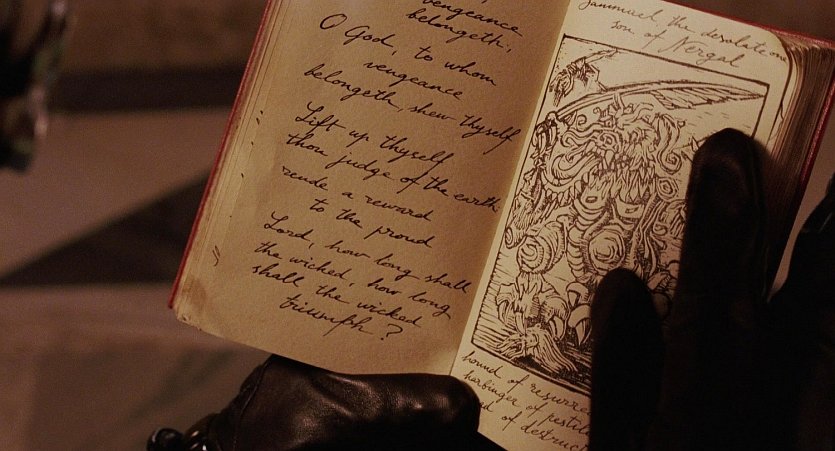 vengeance
belongeth;
O God, to whom
vengeance
belongeth, shew thyself
Lift up thyself
thou judge of the earth
rende a reward
to the proud
Lord, how long shall
the wicked, how long
shall the wicked
triumph?
Sammael the desolation
son of Nergal
hound of resurre
harbinger of pestile
of destruct